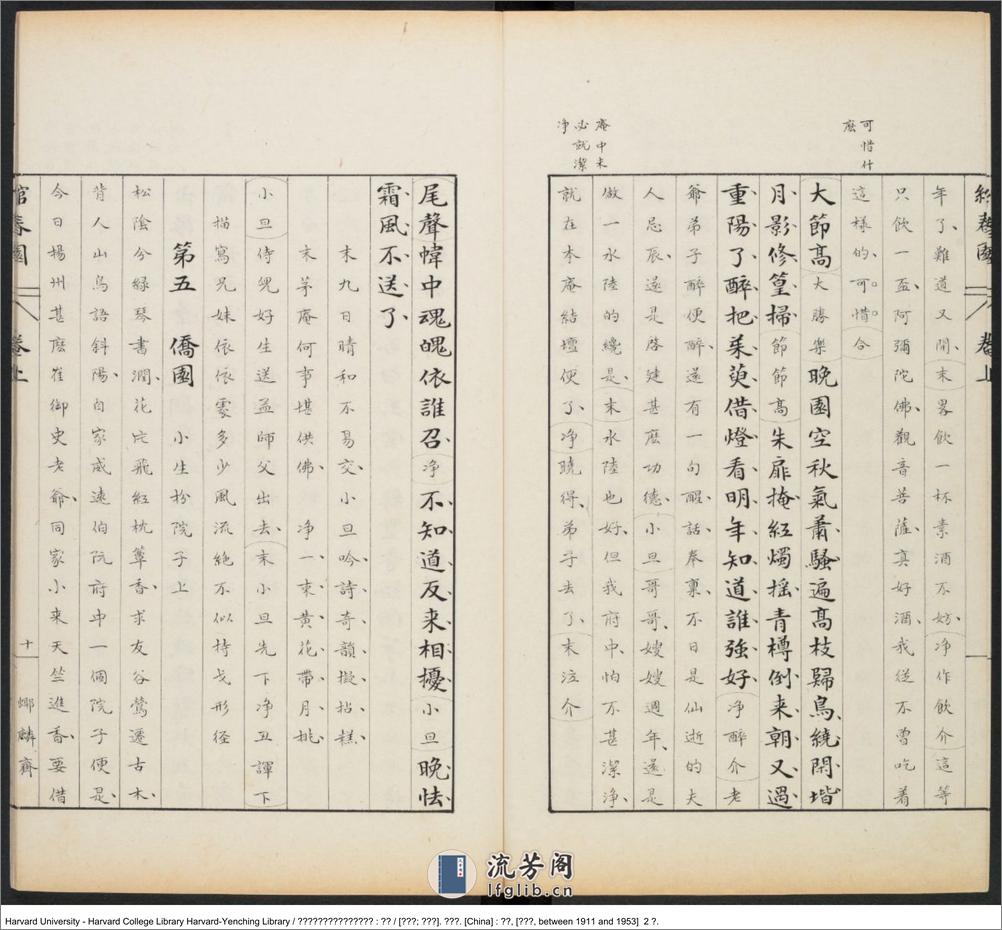 可惜什
麽
年了難道又開末畧飲一杯素酒不妨净作飲介這等
只飲一盃阿彌陀佛觀音菩薩真好酒我從不曾吃着
這樣的可惜合
大節高大勝樂晚園空秋氣蕭騷遍高枝歸鳥繞閑堦
月影修篁掃節節高朱扉掩紅燭摇青樽倒来朝又過
重陽了醉把茱萸借燈看明年知道誰强好净醉介老
庵中未
必就潔
净
爺弟子醉便醉還有一句醒話奉禀不日是仙逝的夫
人忌辰還是啓建甚麽功德小旦哥哥嫂嫂週年還是
做一水陸的纔是末水陸也好但我府中怕不甚潔净
就在本庵結壇便了净曉得弟子去了末泣介
尾聲幃中魂魄依誰召净不知道反来相擾小旦晚怯
霜風不送了
末九日晴和不易交小旦吟詩奇韻擬拈糕
末茅庵何事堪供佛净一束黄花帶月挑
小旦侍兒好生送孟師父出去末小旦先下净丑諢下
描寫兄妹依依處多少風流絶不似持戈形径
第五 僑園 小生扮院子上
松陰兮緑琴書潤花片飛紅枕簟香求友谷鶯遷古木
背人山鳥語斜陽自家威遠伯阮府中一個院子便是
今日揚州甚麽崔御史老爺同家小来天竺進香要借
卷上
十
螂麟齋
流芳阁
lfglib.cn
Harvard University - Harvard College Library Harvard-Yenching Library / ??????????????? : ?? / [???; ???]. ???. [China] : ??, [???, between 1911 and 1953] 2 ?.